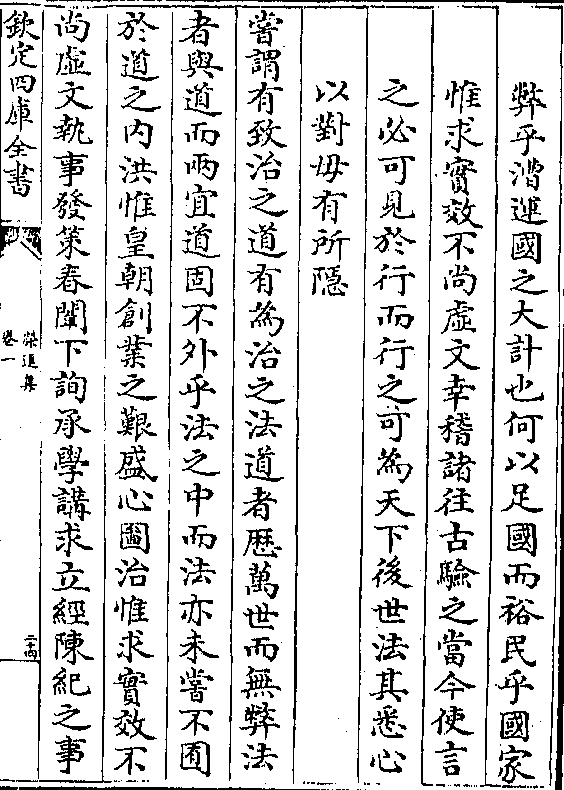 弊乎漕運國之大計也何以足國而裕民乎國家
惟求實效不尚虛文幸稽諸往古驗之當今使言
之必可見於行而行之可為天下後世法其悉心
以對毋有所隱
嘗謂有致治之道有為治之法道者歷萬世而無弊法
者與道而兩宜道固不外乎法之中而法亦未嘗不囿
於道之内洪惟皇朝創業之艱盛心圖治惟求實效不
尚虛文執事發策春闈下詢承學講求立經陳紀之事
欽定四庫全書
榮進集
卷一
二十四